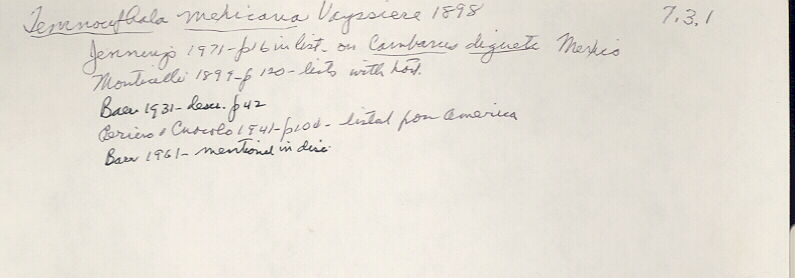 Temnocephala mexicana Vayssiere 1898 7.3.1
Jennings 1971-p16 in list. on Cambarus digueti Mexico
Monticelli 1899-p 120-lists with host.
Baer 1931-descr. p42
Pereira & Cuocolo 1941-p104- listed from america
Baer 1961- mentioned in disc